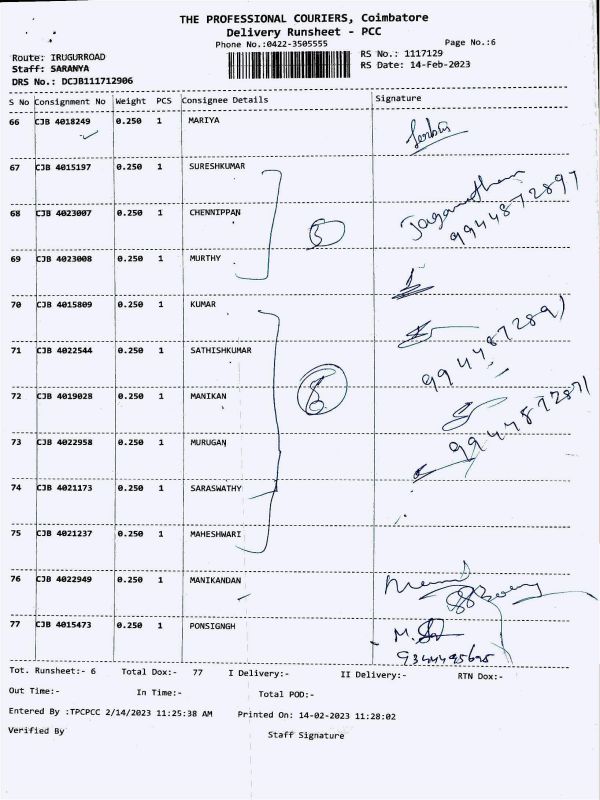 THE PROFESSIONAL COURIERS, Coimbatore
Delivery Runsheet - PCC
Phone No.:0422-3505555 Page No.:6
Route: IRUGURROAD RS No.: 1117129
Staff: SARANYA RS Date: 14-Feb-2023
DRS No.: DCJB111712906
S No Consignment No Weight PCS Consignee Details Signature
66 CJB 4018249 0.250 1 MARIYA
67 CJB 4015197 0.250 1 SURESHKUMAR
Jaganathan
9944872897
68 CJB 4023007 0.250 1 CHENNIPPAN
69 CJB 4023008 0.250 1 MURTHY
70 CJB 4015809 0.250 1 KUMAR
71 CJB 4022544 0.250 1 SATHISHKUMAR
72 CJB 4019028 0.250 1 MANIKAN
73 CJB 4022958 0.250 1 MURUGAN
74 CJB 4021173 0.250 1 SARASWATHY
75 CJB 4021237 0.250 1 MAHESHWARI
76 CJB 4022949 0.250 1 MANIKANDAN
77 CJB 4015473 0.250 1 PONSIGNGH
Tot. Runsheet:- 6 Total Dox:- 77 I Delivery:- II Delivery:- RTN Dox:-
Out Time:- In Time:- Total POD:-
Entered By :TPCPCC 2/14/2023 11:25:38 AM Printed On: 14-02-2023 11:28:02
Verified By Staff Signature